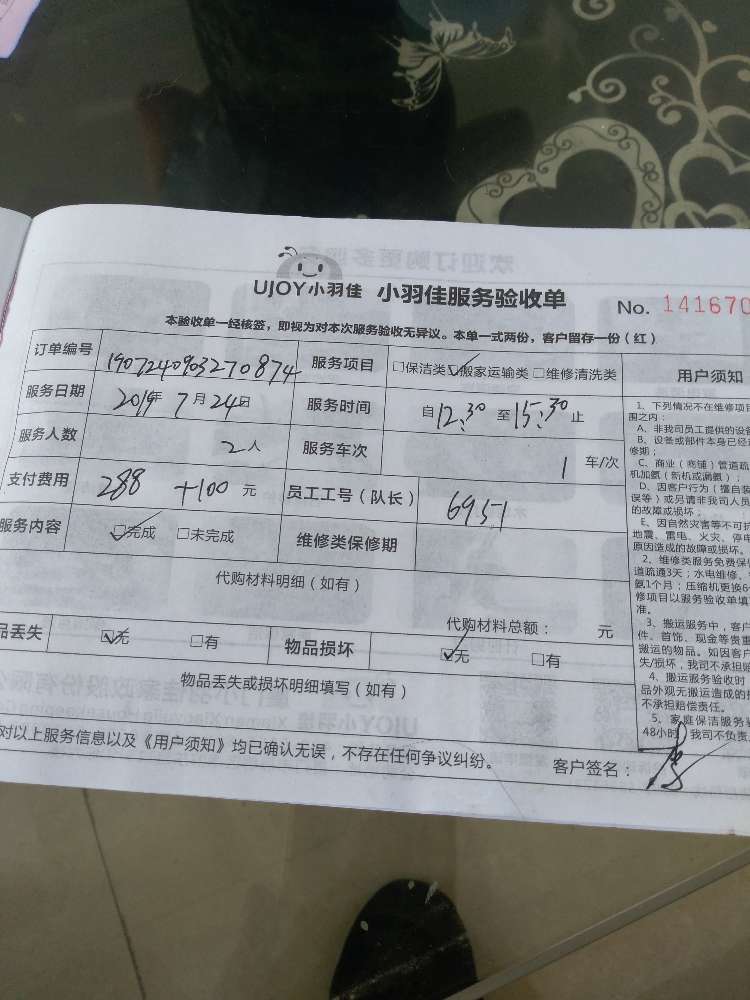 UJOY小羽佳 小羽佳服务验收单 No. 141670
本验收单一经核签，即视为对本次服务验收无异议。本单一式两份，客户留存一份（红）
订单编号 1907240903270874 服务项目 □保洁类 ☑搬家运输类 □维修清洗类 用户须知
服务日期 2019年7月24日 服务时间 自12:30至15:30止
服务人数 2人 服务车次 1 车/次
支付费用 288 +100 元 员工工号（队长） 6951
服务内容 ☑完成 □未完成 维修类保修期
代购材料明细（如有）
代购材料总额： 元
品丢失 ☑无 □有 物品损坏 ☑无 □有
物品丢失或损坏明细填写（如有）
对以上服务信息以及《用户须知》均已确认无误，不存在任何争议纠纷。 客户签名：
1、下列情况不在维修项目
围之内：
A、非我司员工提供的设备
B、设备或部件本身已经
修期；
C、商业（商铺）管道疏
机加氨（新机或漏氨）；
D、因客户行为（擅自装
误等）或另请非我司人员
的故障或损坏；
E、因自然灾害等不可抗
地震、雷电、火灾、停电
原因造成的故障或损坏。
2、维修类服务免费保
道疏通3天；水电维修、
氨1个月；压缩机更换6
修项目以服务验收单填
准。
3、搬运服务中，客户
件、首饰、现金等贵重
搬运的物品。如因客户
失/损坏，我司不承担赔
4、搬运服务验收时
品外观无搬运造成的损
不承担赔偿责任。
5、家庭保洁服务
48小时，我司不负责